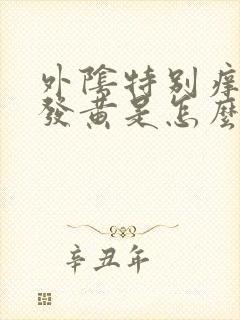 外陰特别痒
發黄是怎麼
辛丑年